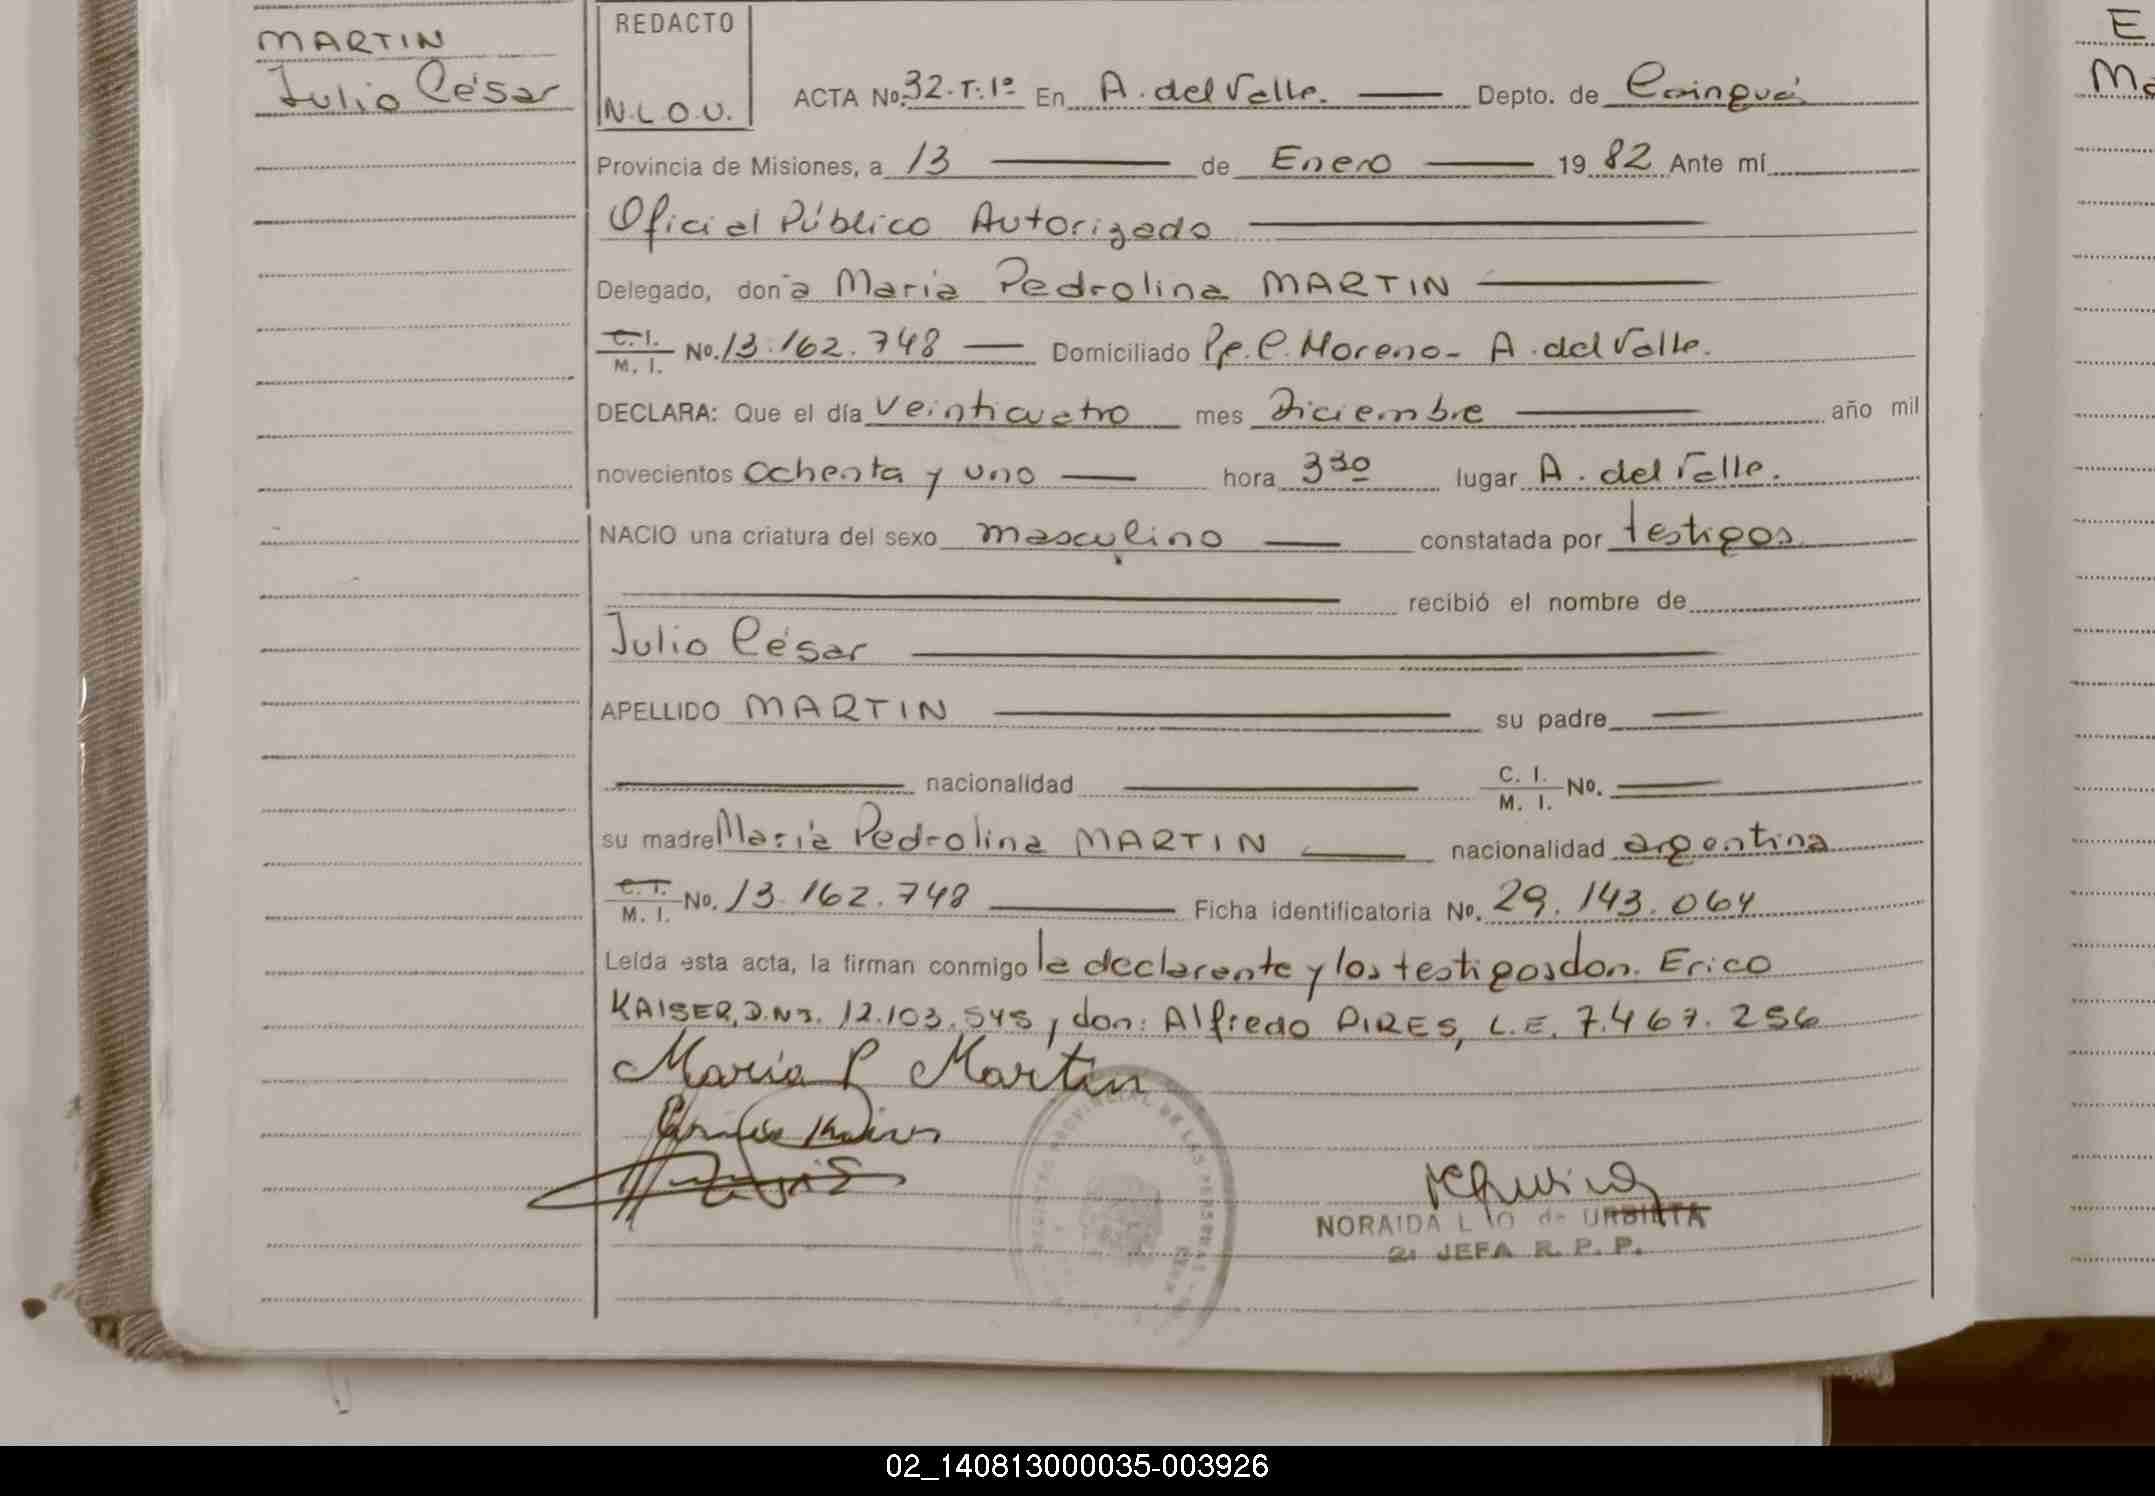 MARTIN
Julio César
REDACTO
N.L.O.U.
ACTA No. 32. T: 1º En A. del Valle. Depto. de Cainguá
Provincia de Misiones, a 13 de Enero 19 82 Ante mí
Oficial Público Autorizado
Delegado, don a Maria Pedrolina MARTIN
C. I.
M. I. No. 13.162.748 Domiciliado Pje. C. Moreno - A. del Valle.
DECLARA: Que el día veinticuatro mes Diciembre año mil
novecientos ochenta y uno hora 3 30 lugar A. del Valle.
NACIO una criatura del sexo masculino constatada por testigos
recibió el nombre de
Julio César
APELLIDO MARTIN su padre
nacionalidad C. I.
M. I. No.
su madre María Pedrolina MARTIN nacionalidad argentina
C. I.
M. I. No. 13.162.748 Ficha identificatoria No. 29.143.064
Leída esta acta, la firman conmigo la declarante y los testigos don. Erico
KAISER, D.N.I. 12.103.545, don: Alfredo PIRES, L.E. 7.467.256
María P Martin
NORAIDA L de URBIETA
2ª JEFA R. P. P.
E
Ma
02_140813000035-003926